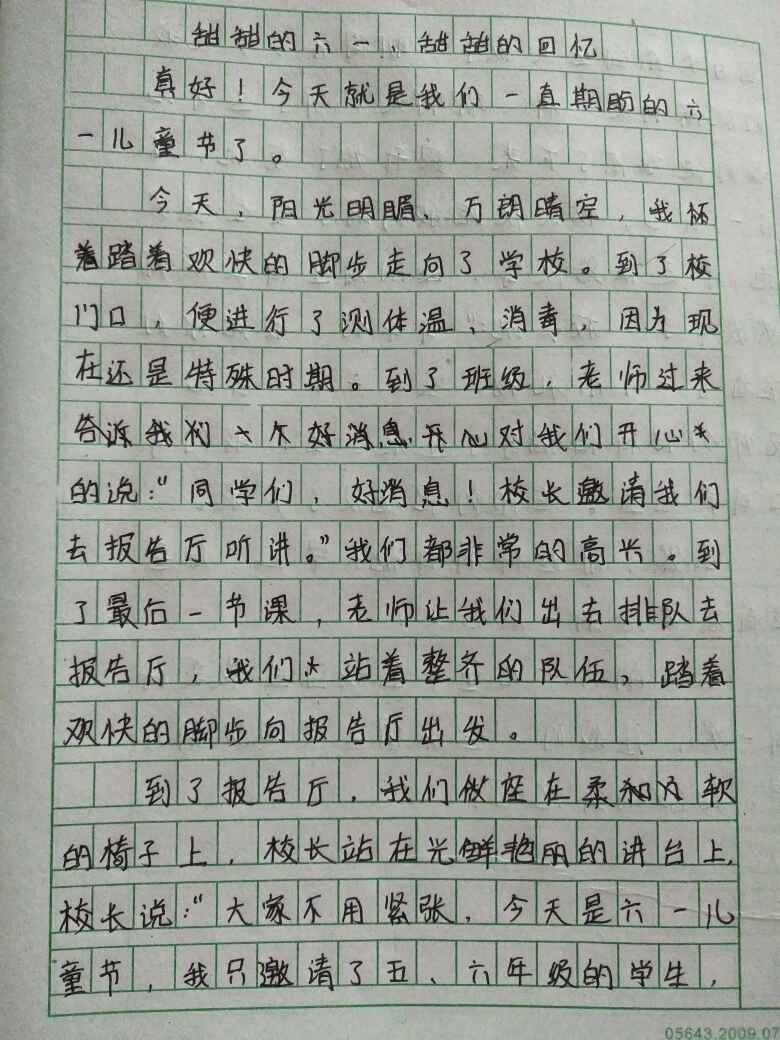 甜甜的六一、甜甜的回忆
真好！今天就是我们一直期盼的六
一儿童节了。
今天，阳光明媚、万朗晴空，我怀
着踏着欢快的脚步走向了学校。到了校
门口，便进行了测体温、消毒，因为现
在还是特殊时期。到了班级，老师过来
告诉我们一个好消息开心对我们开心
的说：“同学们，好消息！校长邀请我们
去报告厅听讲。”我们都非常的高兴。到
了最后一节课，老师让我们出去排队去
报告厅，我们站着整齐的队伍，踏着
欢快的脚步向报告厅出发。
到了报告厅，我们做座在柔和又软
的椅子上，校长站在光鲜艳丽的讲台上，
校长说：“大家不用紧张，今天是六一儿
童节，我只邀请了五、六年级的学生，
05643.2009.07